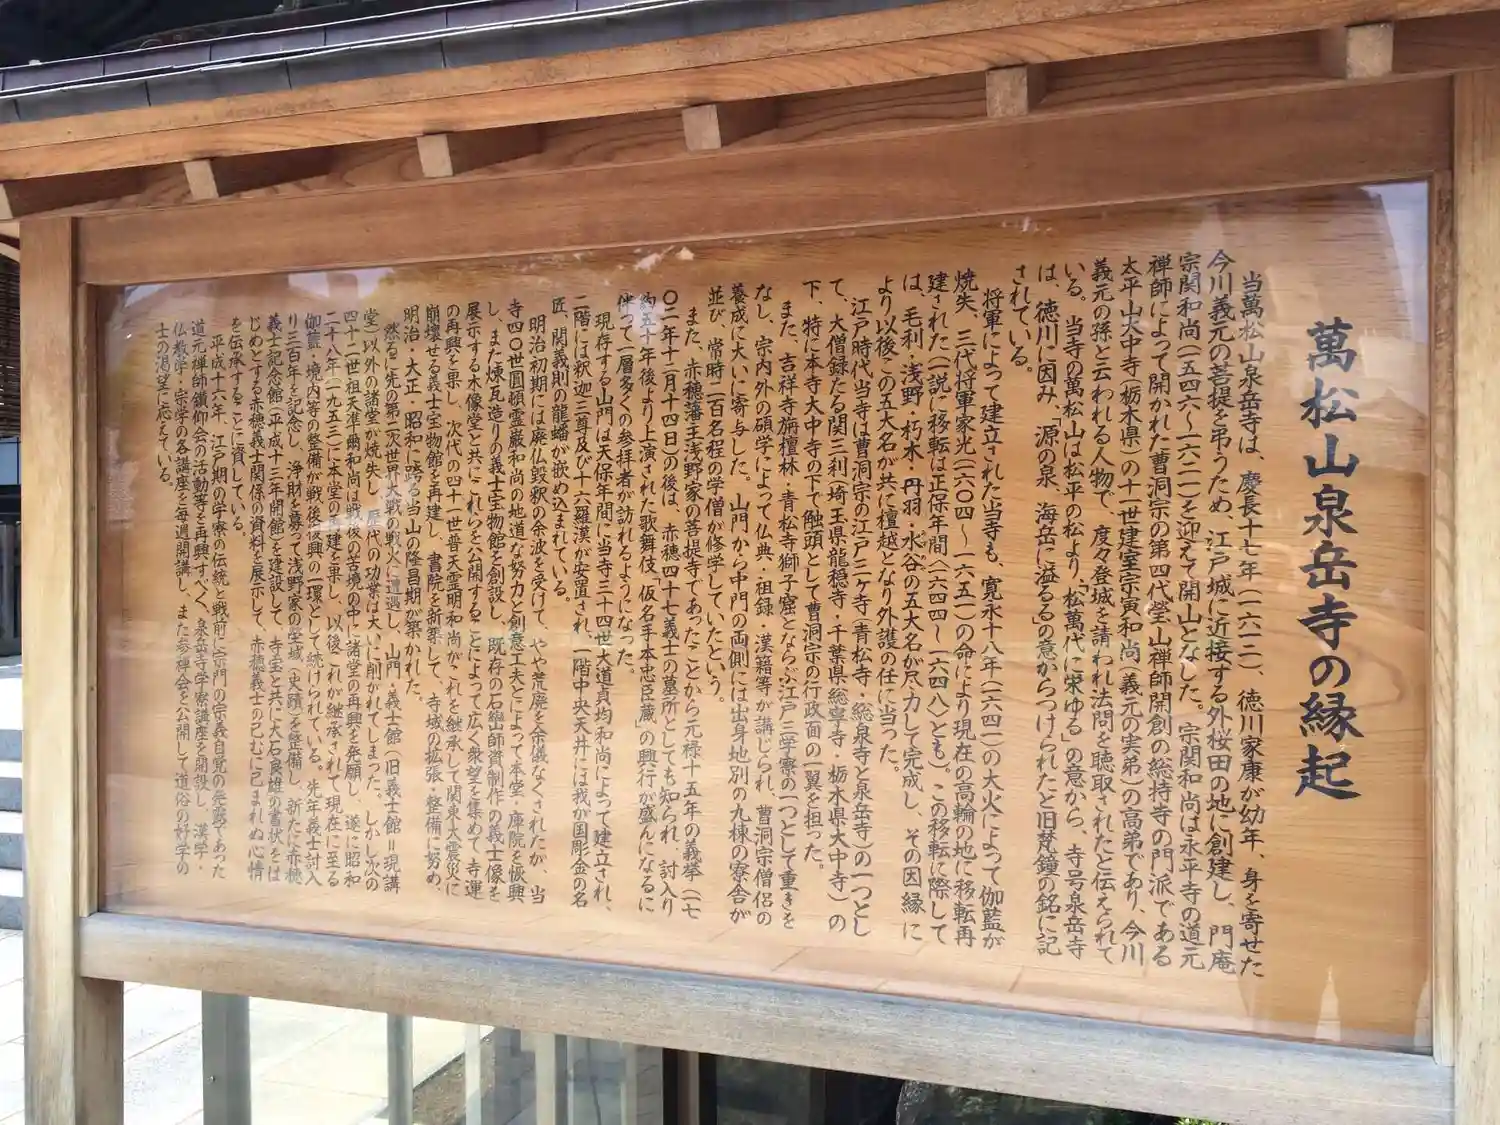 萬松山泉岳寺の縁起
当萬松山泉岳寺は、慶長十七年(一六一二)、徳川家康が幼年、身を寄せた
今川義元の菩提を弔うため、江戸城に近接する外桜田の地に創建し、門庵
宗関和尚(一五四六〜一六二一)を迎えて開山となした。宗関和尚は永平寺の道元
禅師によって開かれた曹洞宗の第四代瑩山禅師開創の総持寺の門派である
太平山大中寺(栃木県)の十一世建室宗寅和尚(義元の実弟)の高弟であり、今川
義元の孫と云われる人物で、度々登城を請われ法問を聴取されたと伝えられて
いる。当寺の萬松山は松平の松より、「松萬代に栄ゆる」の意から、寺号泉岳寺
は、徳川に因み、「源の泉、海岳に溢るる」の意からつけられたと旧梵鐘の銘に記
されている。
将軍によって建立された当寺も、寛永十八年(一六四一)の大火によって伽藍が
焼失、三代将軍家光(一六〇四〜一六五一)の命により現在の高輪の地に移転再
建された(一説に移転は正保年間〈一六四四〜一六四八〉とも)。この移転に際して
は、毛利・浅野・朽木・丹羽・水谷の五大名が尽力して完成し、その因縁に
より以後この五大名が共に檀越となり外護の任に当った。
江戸時代当寺は曹洞宗の江戸三ヶ寺(青松寺・総泉寺と泉岳寺)の一つとし
て、大僧録たる関三刹(埼玉県龍穏寺・千葉県総寧寺・栃木県大中寺)の
下、特に本寺大中寺の下で触頭として曹洞宗の行政面の一翼を担った。
また、吉祥寺旃檀林・青松寺獅子窟とならぶ江戸三学寮の一つとして重きを
なし、宗内外の碩学によって仏典・祖録・漢籍等が講じられ、曹洞宗僧侶の
養成に大いに寄与した。山門から中門の両側には出身地別の九棟の寮舎が
並び、常時二百名程の学僧が修学していたという。
また、赤穂藩主浅野家の菩提寺であったことから元禄十五年の義挙(一七
〇二年十二月十四日)の後は、赤穂四十七義士の墓所としても知られ、討入り
約五十年後より上演された歌舞伎「仮名手本忠臣蔵」の興行が盛んになるに
伴って一層多くの参拝者が訪れるようになった。
現存する山門は天保年間に当寺三十四世大道貞均和尚によって建立され、
二階には釈迦三尊及び十六羅漢が安置され、一階中央天井には我が国彫金の名
匠、関義則の龍蟠が嵌め込まれている。
明治初期には廃仏毀釈の余波を受けて、やや荒廃を余儀なくされたが、当
寺四〇世圓頓霊巌和尚の地道な努力と創意工夫とによって本堂・庫院を恢興
し、また煉瓦造りの義士宝物館を創設し、既存の石鎚師資制作の義士像を
展示する木像堂と共にこれらを公開することによって広く衆望を集めて寺運
の再興を果し、次代の四十一世普天霊明和尚がこれを継承して関東大震災に
崩壊せる義士宝物館を再建し、書院を新築して、寺域の拡張・整備に努め、
明治・大正・昭和に跨る当山の隆昌期が築かれた。
然るに先の第二次世界大戦の戦火に遭遇し、山門・義士館(旧義士館=現講
堂)以外の諸堂が焼失し、歴代の功業は大いに削がれてしまった。しかし次の
四十二世祖天準爾和尚は戦後の苦境の中に諸堂の再興を発願し、遂に昭和
二十八年(一九五三)に本堂の再建を果し、以後これが継承されて現在に至る
伽藍・境内等の整備が戦後復興の一環として続けられている。先年義士討入
り三百年を記念し、浄財を募って浅野家の塋域(史蹟)を整備し、新たに赤穂
義士記念館(平成十三年開館)を建設して、寺宝と共に大石良雄の書状をは
じめとする赤穂義士関係の資料を展示して、赤穂義士の已むに已まれぬ心情
を伝承することに資している。
平成十六年、江戸期の学寮の伝統と戦前に宗門の宗義自覚の発露であった
道元禅師鑽仰会の活動等を再興すべく、泉岳寺学寮講座を開設し、漢学・
仏教学・宗学の各講座を毎週開講し、また参禅会を公開して道俗の好学の
士の渇望に応えている。